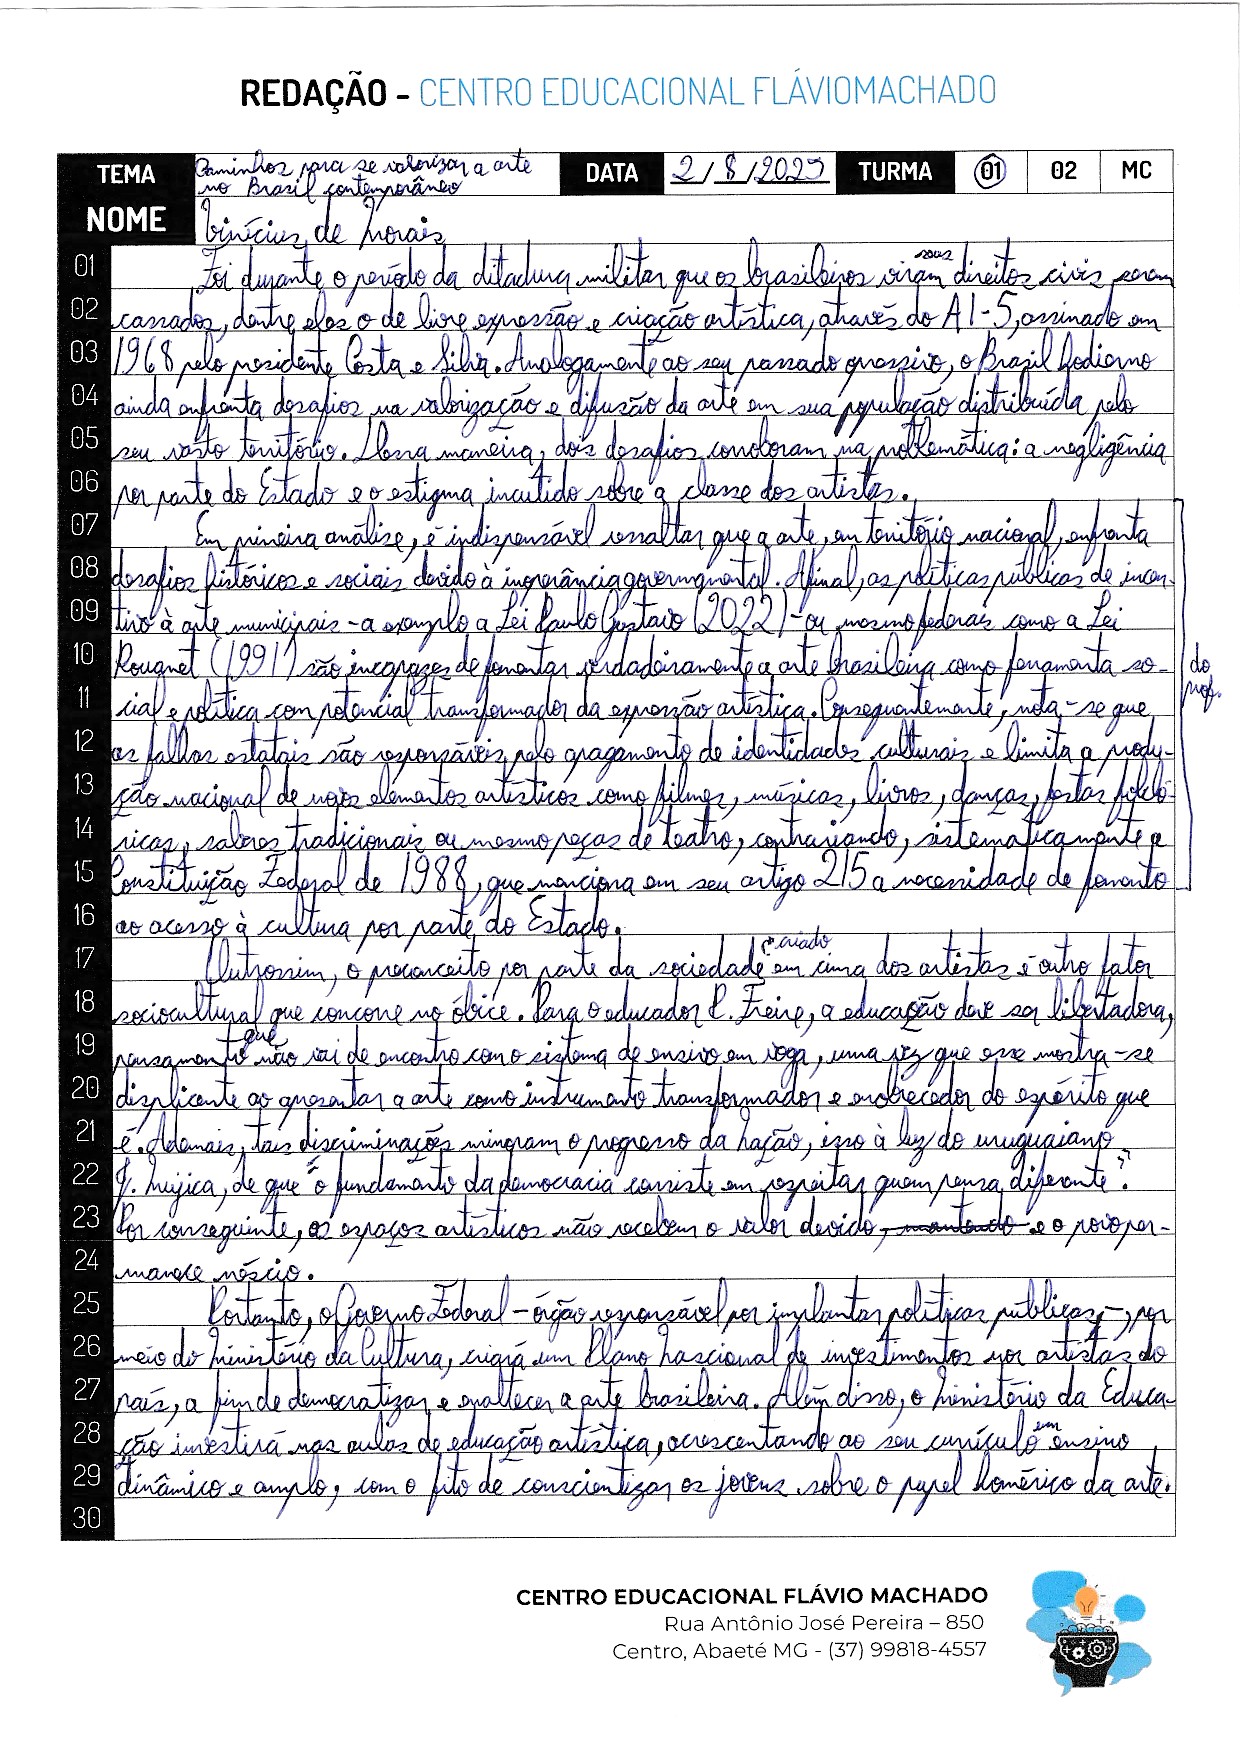 REDAÇÃO - CENTRO EDUCACIONAL FLÁVIOMACHADO
TEMA Caminhos para se valorizar a arte no Brasil contemporâneo DATA 2/8/2025 TURMA 01 02 MC
NOME Vinícius de Morais
01 Foi durante o período da ditadura militar que os brasileiros viram seus direitos civis serem
02 cassados, dentre eles o de livre expressão e criação artística, através do AI-5, assinado em
03 1968 pelo presidente Costa e Silva. Analogamente ao seu passado opressivo, o Brasil hodierno
04 ainda enfrenta desafios na valorização e difusão da arte em sua população distribuída pelo
05 seu vasto território. Dessa maneira, dois desafios corroboram na problemática: a negligência
06 por parte do Estado e o estigma incutido sobre a classe dos artistas.
07 Em primeira análise, é indispensável ressaltar que a arte, em território nacional, enfronta
08 desafios históricos e sociais devido à ingerância governamental. Afinal, as políticas públicas de incen-
09 tivo à arte municipais - a exemplo a Lei Paulo Gustavo (2022) - ou mesmo federais como a Lei
10 Rouanet (1991) são incapazes de fomentar verdadeiramente a arte brasileira como ferramenta so-
11 cial e política com potencial transformador da expressão artística. Consequentemente, nota-se que
12 as falhas estatais são responsáveis pelo apagamento de identidades culturais e limita a produ-
13 ção nacional de novos elementos artísticos como filmes, músicas, livros, danças, festas folcló-
14 ricas, saberes tradicionais ou mesmo peças de teatro, contrariando, sistematicamente a
15 Constituição Federal de 1988, que menciona em seu artigo 215 a necessidade de fomento
do prof.
16 ao acesso à cultura por parte do Estado.
17 Outrossim, o preconceito por parte da sociedade criado em cima dos artistas é outro fator
18 sociocultural que concorre no óbice. Para o educador P. Freire, a educação deve ser libertadora,
19 pensamento que não vai de encontro com o sistema de ensivo em voga, uma vez que esse mostra-se
20 displicente ao apresentar a arte como instrumento transformador e enobrecedor do espírito que
21 é. Ademais, tais discriminações minoram o progresso da nação, isso à luz do uruguaiano
22 J. Mujica, de que "o fundamento da democracia consiste em respeitar quem pensa diferente".
23 Por conseguinte, os espaços artísticos não recebem o valor devido, mantendo e o povo per-
24 manece néscio.
25 Portanto, o Governo Federal - órgão responsável por implantar políticas públicas -, por
26 meio do Ministério da Cultura, criará um Plano Nascional de investimentos nos artistas do
27 país, a fim de democratizar e enaltecer a arte brasileira. Além disso, o Ministério da Educa-
28 ção investirá nas aulas de educação artística, acrescentando ao seu currículo um ensino
29 dinâmico e amplo, com o fito de conscientizar os jovens sobre o papel homérico da arte.
30
CENTRO EDUCACIONAL FLÁVIO MACHADO
Rua Antônio José Pereira – 850
Centro, Abaeté MG - (37) 99818-4557